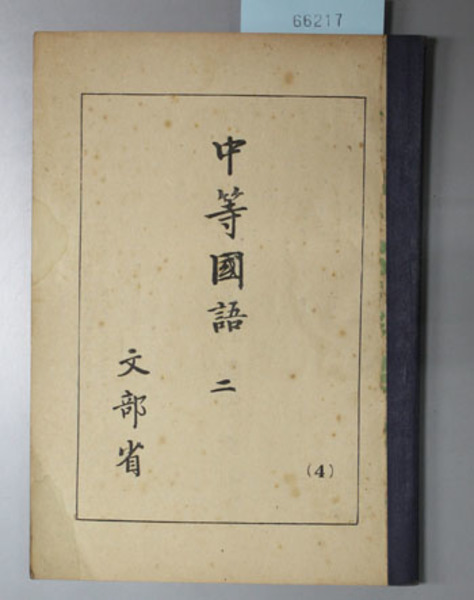 66217
中等國語 二
文部省
(4)